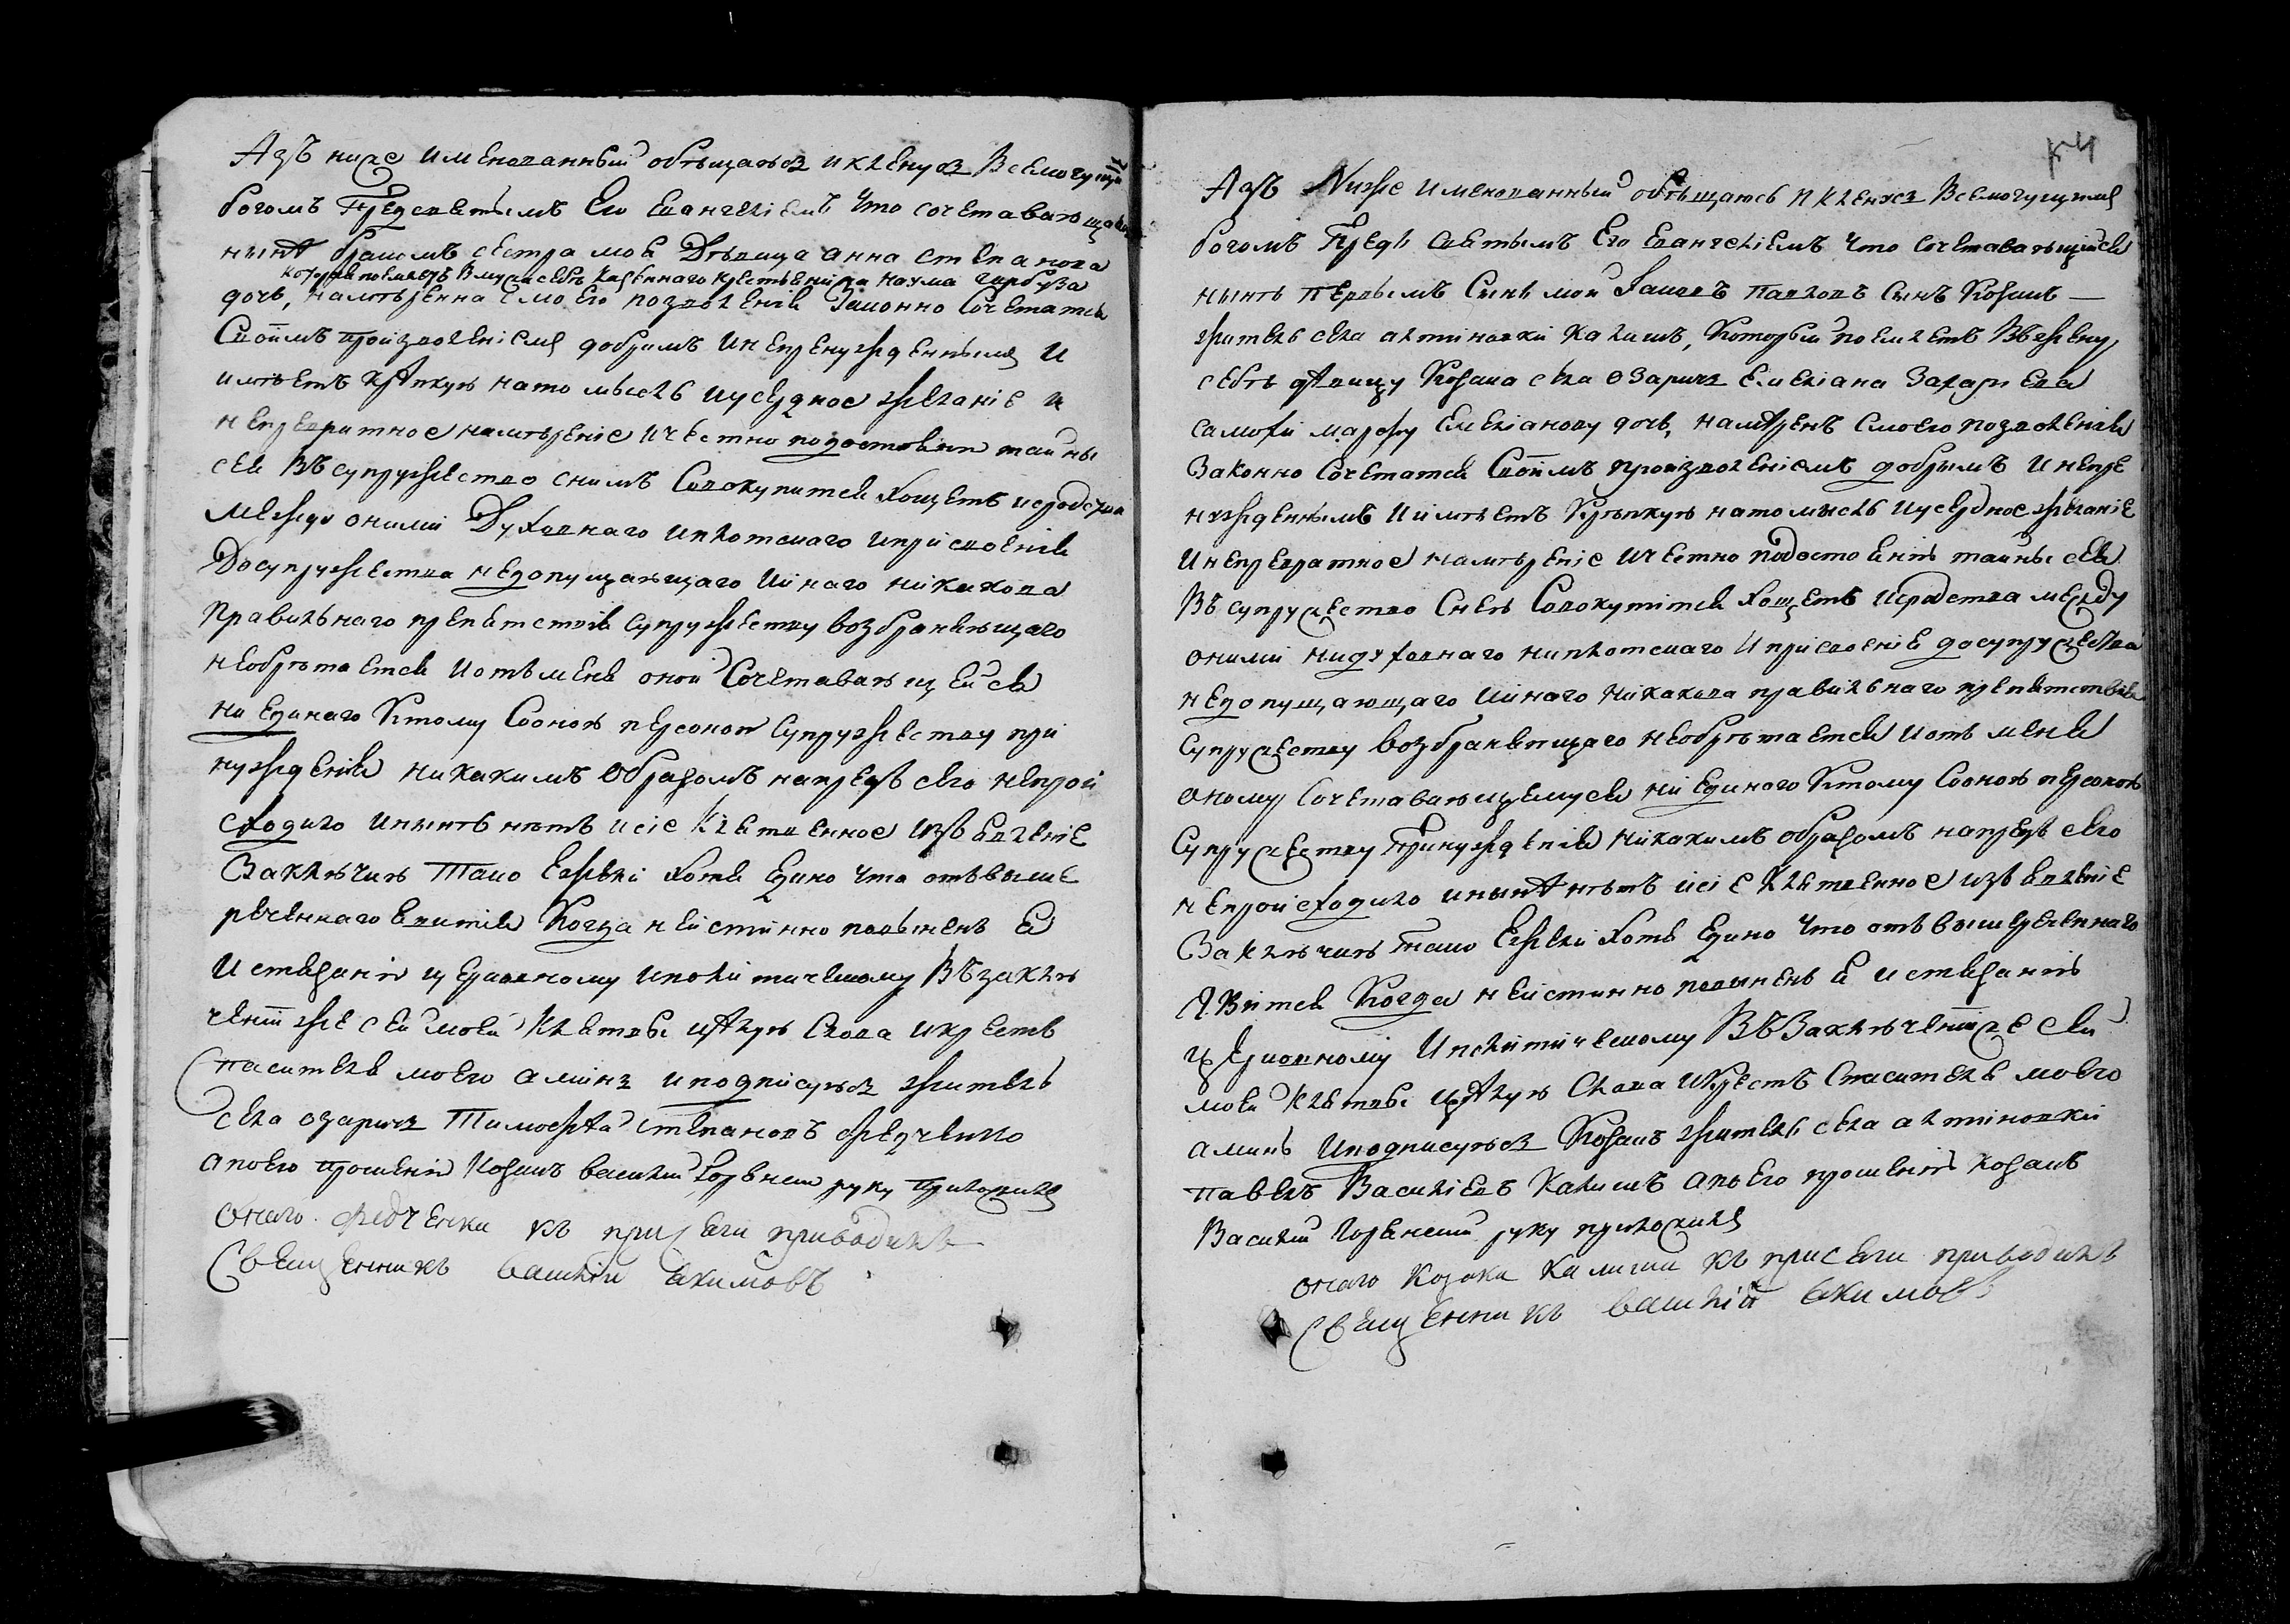 Азъ ниже именованный обѣщаюся и кленуся Всемогущимъ
богомъ Предсвятымъ Его Евангелiемъ что сочетавающаяся
нынѣ бракомъ сестра моя Дѣвица анна степанова
которая поемлетъ В мужа себѣ казенного крестьянина наума гарбуза
дочь, намѣрена смоего позволенiя Законно Сочетатся
Своимъ произволенiемъ добримъ инепренужденнымъ И
имѣетъ крѣпкую на то мысль иусердное желанiе и
непревратное намѣренiе ичестно подостоянiю тайны
сея въ супружество снимъ Совокупитися хощетъ исродства
между оними Духовнаго иплотскаго иприсвоенiя
Досупружества недопущающаго Иинаго никакова
Правильнаго препятствiя супружеству возбраняющаго
необрѣтается Иотъ меня оной Сочетавающейся
ни единаго Ктому Сооною персоною супружеству при
нужденiя никакимъ Образомъ напредъ сего непрои
сходило инынѣ нѣтъ исiе Клятвенное изъявленiе
Заключаю Тако Ежели хотя Едино что отъвыше
реченнаго явится Когда неистинно повиненъ я
Истязанiю церковному иполитическому Въ заклю
ченiи же сей моей Клятвы цѣлую Слова икрестъ
Спасителя моего аминь иподписуюся житель
села озаричъ Тимофѣй степановъ федченко
а поего прошенiю козакъ василий руку приложилъ
Оного федченка къ присяги приводилъ
Священникъ василiй акимовъ
Азъ Ниже именованный обѣщаюсь И кленуся Всемогущимъ
богомъ Предъ святымъ Его Евангелiемъ что сочетавающiйся
нынѣ первымъ Сынъ мой павловъ сынъ Козакъ
житель села алтиновки калишъ, Который поемлетъ Въ жену
себѣ дѣвицу Козака села озаричъ Емелiана Захарiева
самохи марфу Емелiанову дочь, намѣренъ Смоего позволенiя
Законно Сочетатся Своимъ произволенiемъ добрымъ инепре
нужденнымъ Иимѣетъ Крѣпкую натомысль иусердное желанiе
И непревратное намѣренiе Ичестно подостоянiю тайны сея
Въ супружество Снею Совокупитися хощетъ Исродства между
оними нидуховнаго ниплотскаго Иприсвоенiя досупружества
недопущающаго Иинаго никакова правильнаго препятствiя
супружеству возбраняющаго необрѣтается Иотъ меня
оному Сочетавающемуся ни единаго Ктому Сооною персоною
Супружеству Принужденiя никакимъ образомъ напредъ сего
непроисходило инынѣ нѣтъ исiе Клятвенное изъявленiе
Заключаю Тако Ежели хотя Едино что отъвышереченнаго
явится Когда неистинно повиненъ я истязанiю
церковному Иполитическому Въ Заключенiи же сей
моей Клятвы цѣлую Слова Икрестъ Спасителя моего
аминь Иподписуюся Козакъ житель села алтиновки
павелъ Василiевъ калишъ апоего прошенiю козакъ
Василий руку приложилъ
оного козака калиша къ присяги приводилъ
священникъ василiй акимовъ